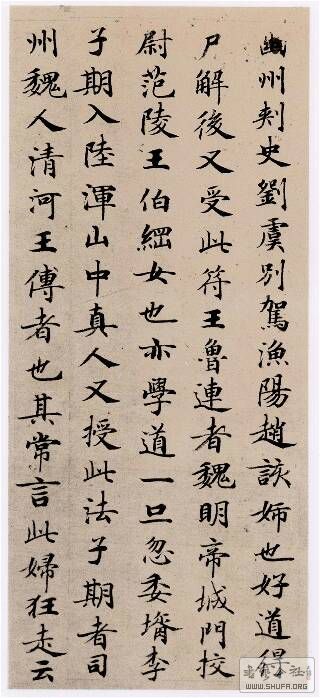 幽州刾史劉虞別駕漁陽趙該姉也好道得
尸解後又受此符王魯連者魏明帝城門挍
尉范陵王伯綱女也亦學道一旦忽委壻李
子期入陸渾山中真人又授此法子期者司
州魏人清河王傅者也其常言此婦狂走云
WWW.SHUFA.ORG